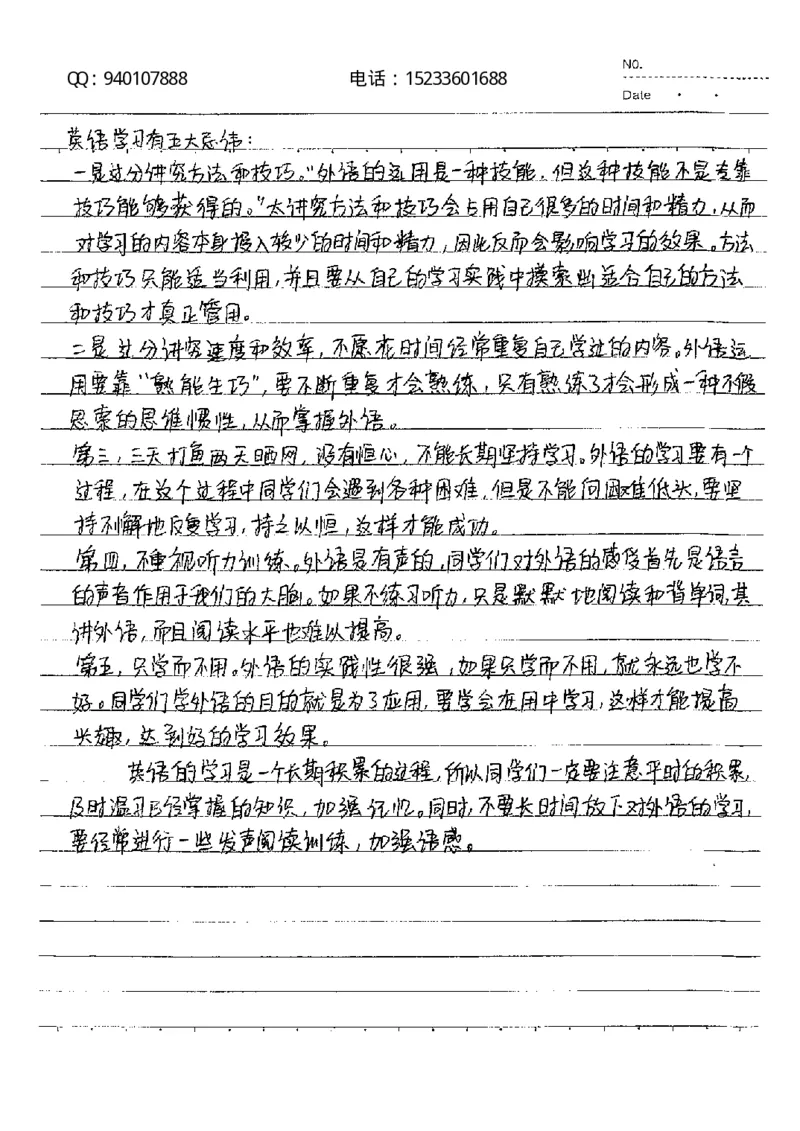 QQ：940107888 电话：15233601688 NO.
Date
英语学习有五大忌讳：
一是过分讲究方法和技巧。"外语的运用是一种技能，但这种技能不是专靠
技巧能够获得的。"太讲究方法和技巧会占用自己很多的时间和精力，从而
对学习的内容本身投入较少的时间和精力，因此反而会影响学习的效果。方法
和技巧只能适当利用，并且要从自己的学习实践中摸索出适合自己的方法
和技巧才真正管用。
二是过分讲究速度和效率，不愿花时间经常重复自己学过的内容。外语运
用要靠"熟能生巧"，要不断重复才会熟练，只有熟练了才会形成一种不假
思索的思维惯性，从而掌握外语。
第三，三天打鱼两天晒网，没有恒心，不能长期坚持学习。外语的学习要有一个
过程，在这个过程中同学们会遇到各种困难，但是不能向困难低头，要坚
持不懈地反复学习，持之以恒，这样才能成功。
第四，不重视听力训练。外语是有声的，同学们对外语的感受首先是语言
的声音作用于我们的大脑。如果不练习听力，只是默默地阅读和背单词，其
讲外语，而且阅读水平也难以提高。
第五，只学而不用。外语的实践性很强，如果只学而不用，就永远也学不
好。同学们学外语的目的就是为了应用，要学会在用中学习，这样才能提高
兴趣，达到好的学习效果。
英语的学习是一个长期积累的过程，所以同学们一定要注意平时的积累，
及时温习已经掌握的知识，加强记忆。同时，不要长时间放下对外语的学习，
要经常进行一些发声阅读训练，加强语感。